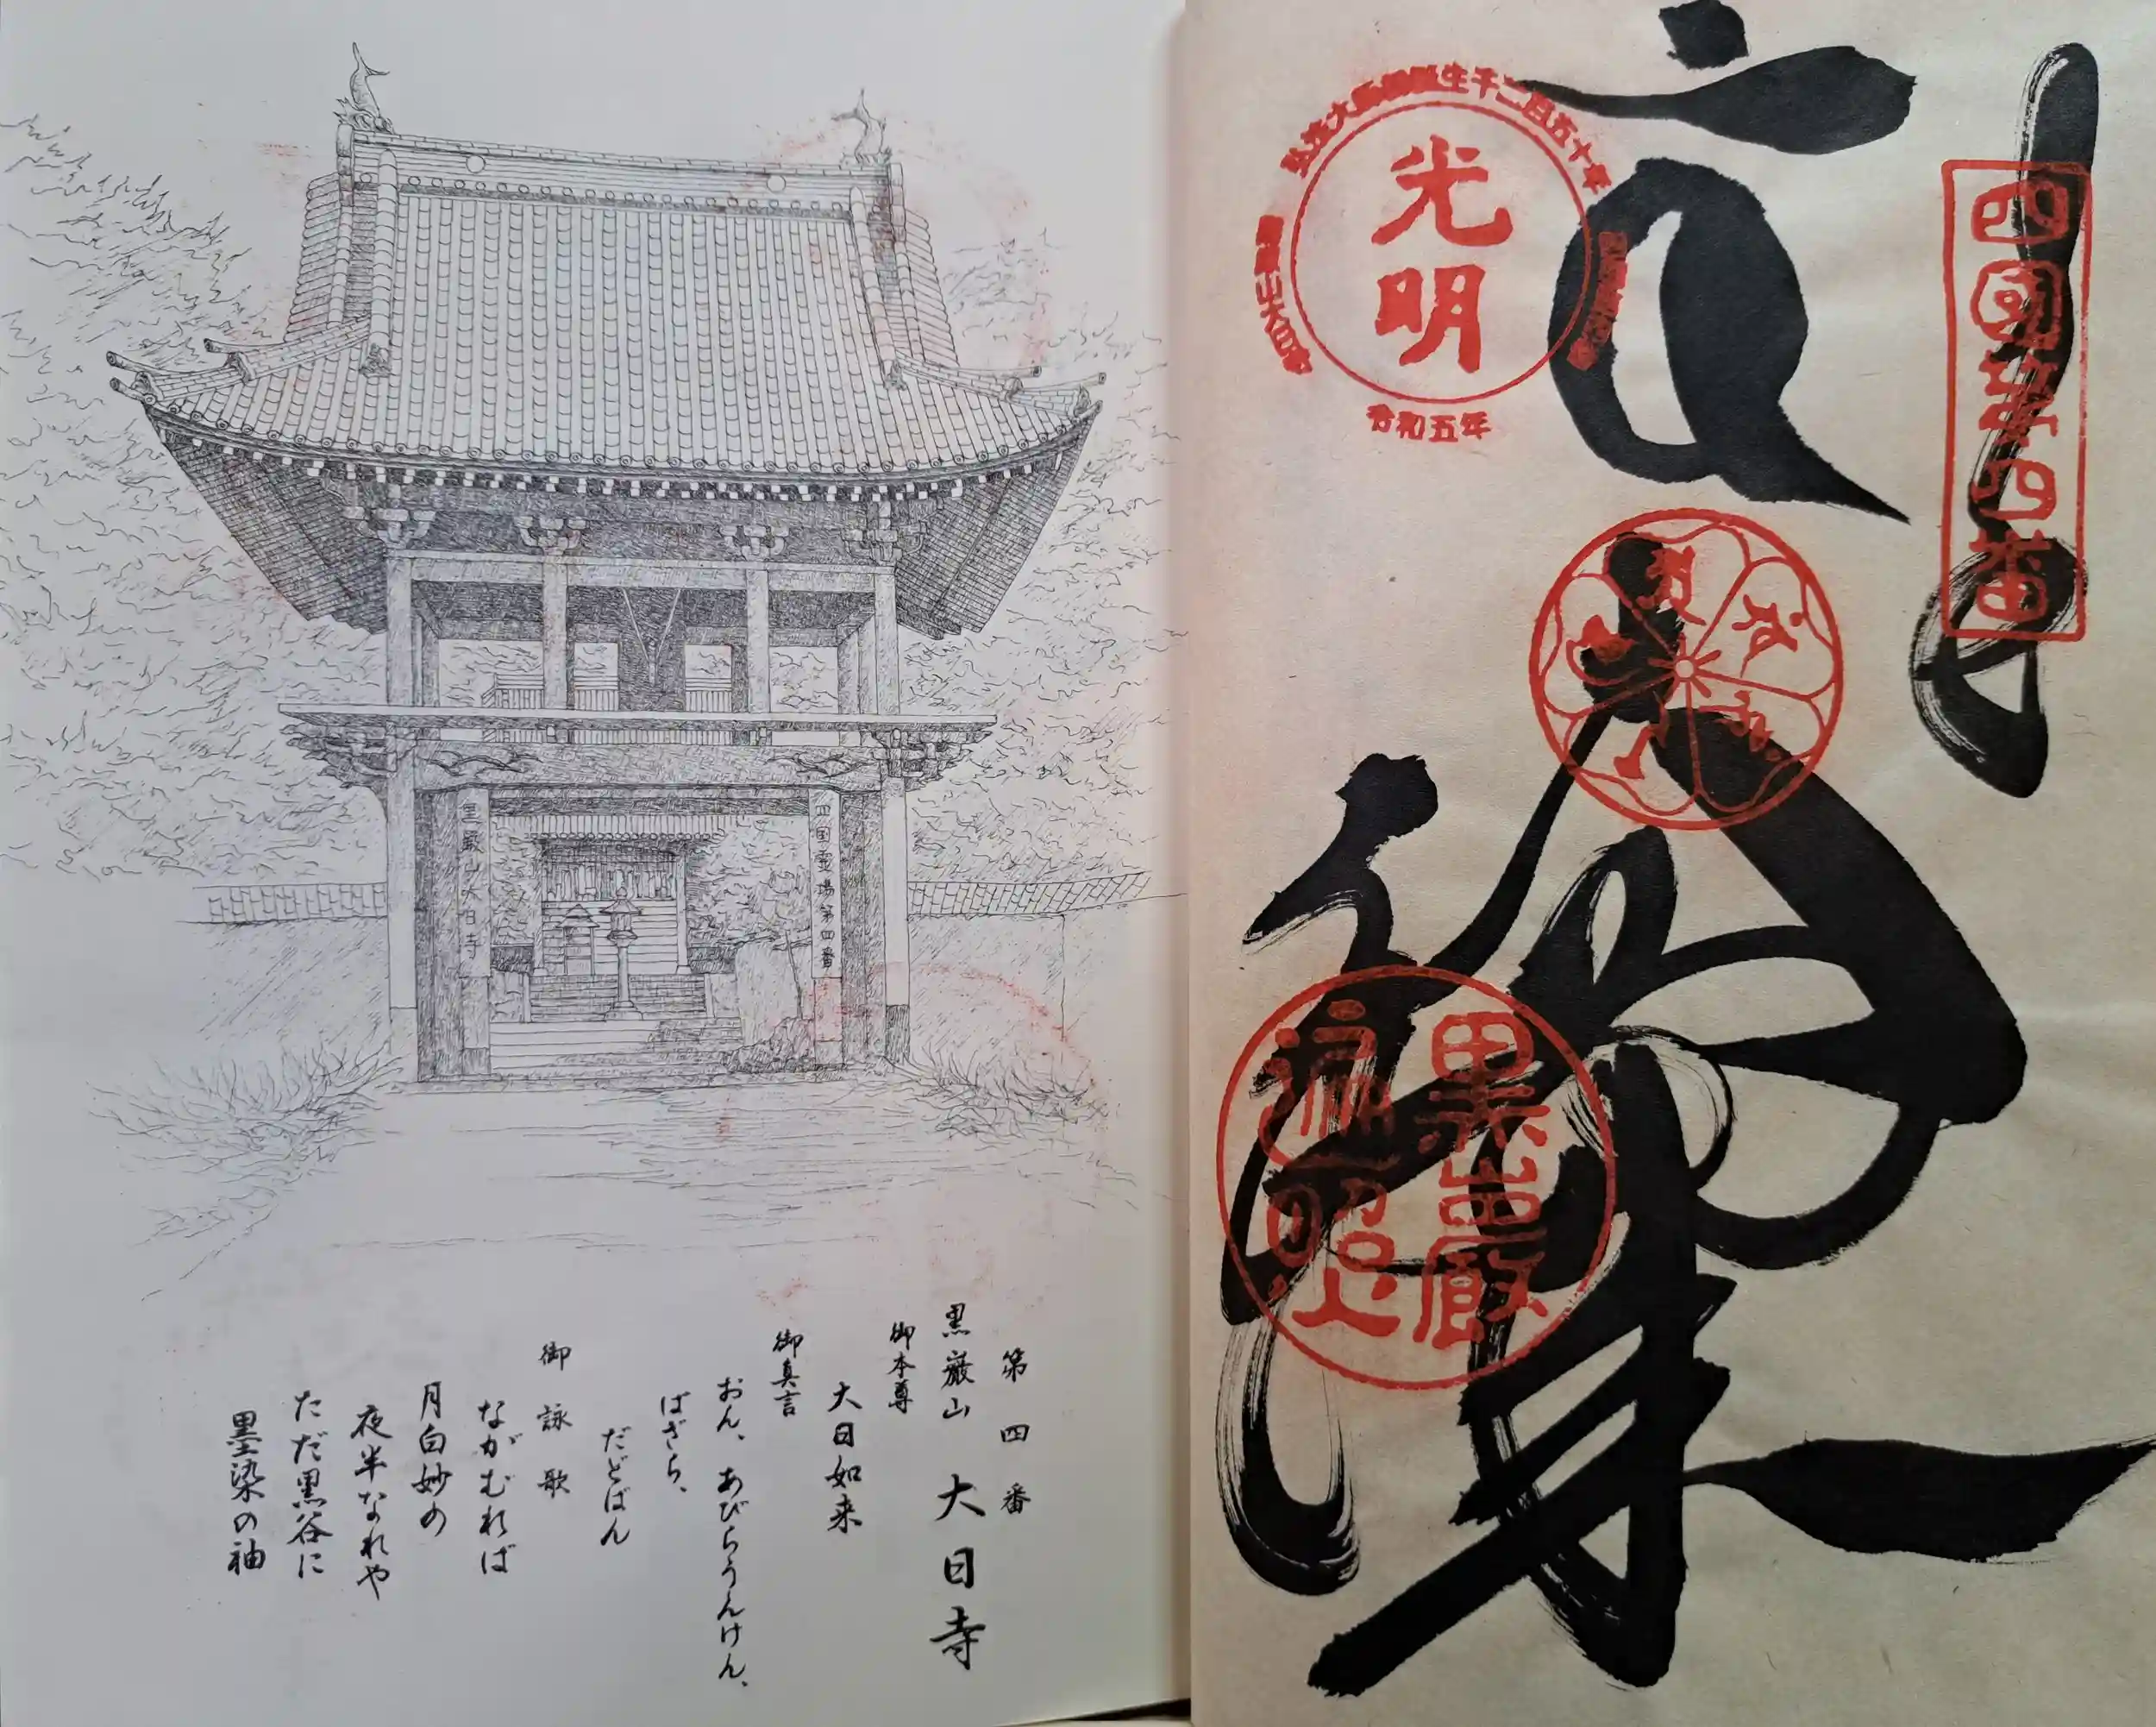 黒巌山大日寺
四国霊場第四番
第四番
黒巌山 大日寺
御本尊
大日如来
御真言
おん、あびらうんけん、
ばざら、
だどばん
御詠歌
ながむれば
月白妙の
夜半なれや
ただ黒谷に
墨染の袖
四國第四番
弘法大師御誕生千二百五十年
光明
令和五年
黒巌山
遍照